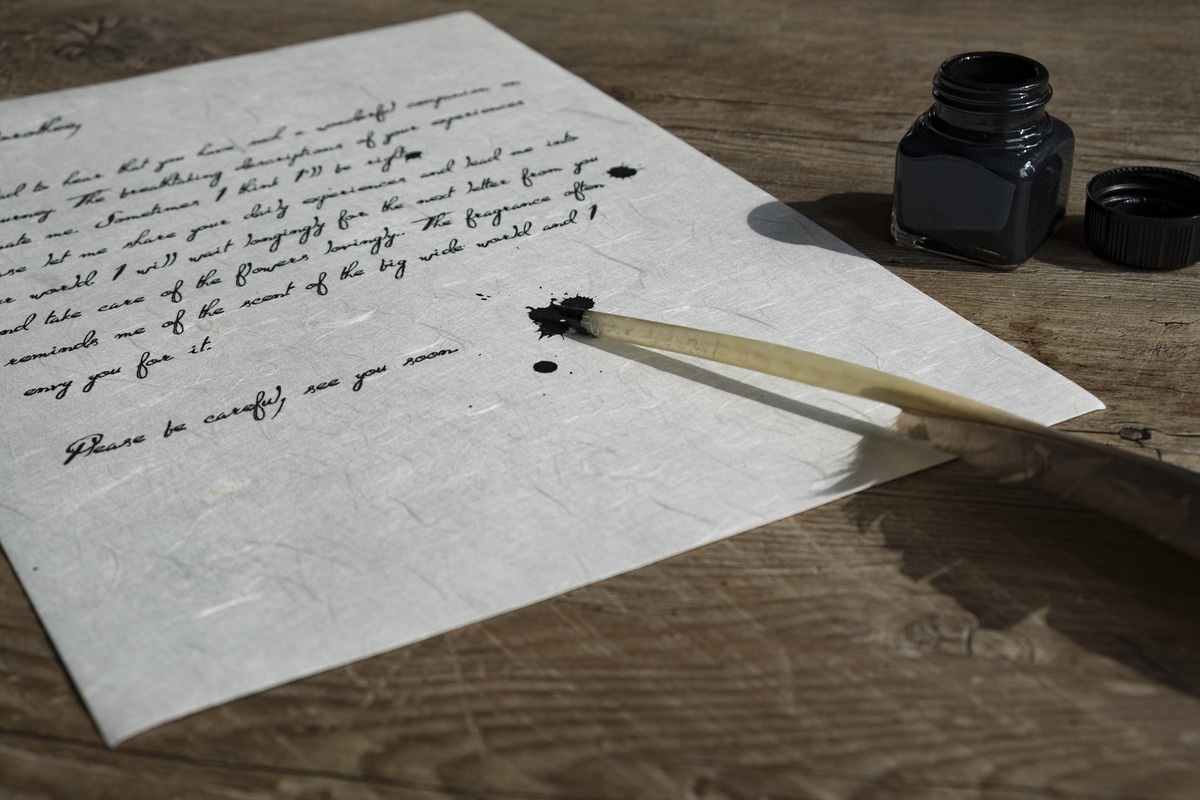 to hear that you have a wonderful companion on
The breathtaking descriptions of your experiences
me. Sometimes I think I'll be right
let me share your daily experiences and lead me into
world I will wait longingly for the next letter from you
take care of the flowers lovingly.. The fragrance often
reminds me of the scent of the big wide world and I
envy you for it.
Please be careful, see you soon